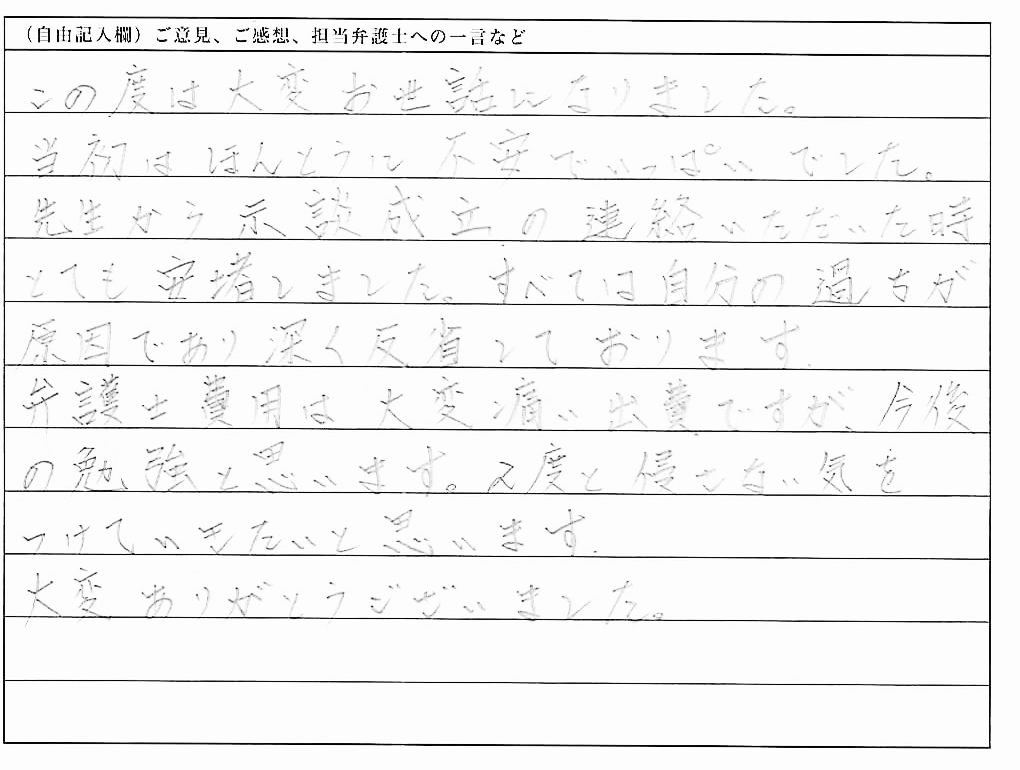 （自由記入欄）ご意見、ご感想、担当弁護士への一言など
この度は大変お世話になりました。
当初はほんとうに不安でいっぱいでした。
先生から示談成立の連絡いただいた時
とても安堵しました。すべては自分の過ちが
原因であり深く反省しております.
弁護士費用は大変痛い出費ですが、今後
の勉強と思います。2度と侵さない気を
つけていきたいと思います.
大変ありがとうございました。